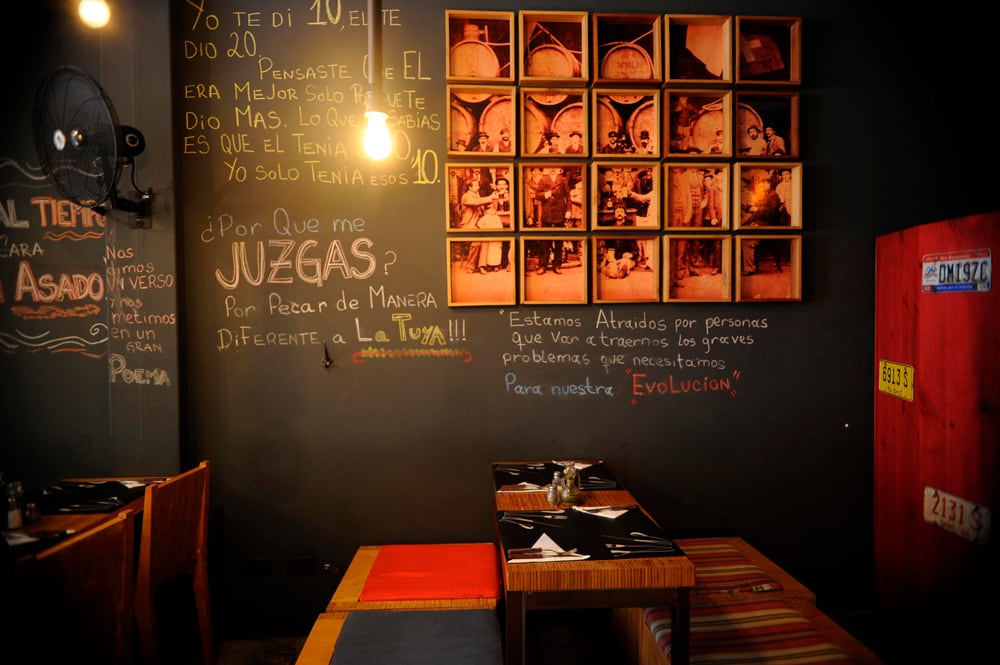 Yo TE DI 10, EL TE
DIO 20.
PENSASTE QUE EL
ERA MEJOR SOLO PORQUE TE
DIO MAS. LO QUE SABIAS
ES QUE EL TENIA
YO SOLO TENIA ESOS 10.
¿Por Que me
JUZGAS?
Por Pecar de MANERA
DiFERENTE a La TuYA!!!
"Estamos Atraidos por personas
que van a traernos los graves
problemas que necesitamos
Para nuestra "EvoLucion"
AL TIEMPO
CARA
ASADO
Nos
dimos
UN VERSO
y nos
metimos
en un
GRAN
POEMA
DM19ZC
6913 S
2131 S